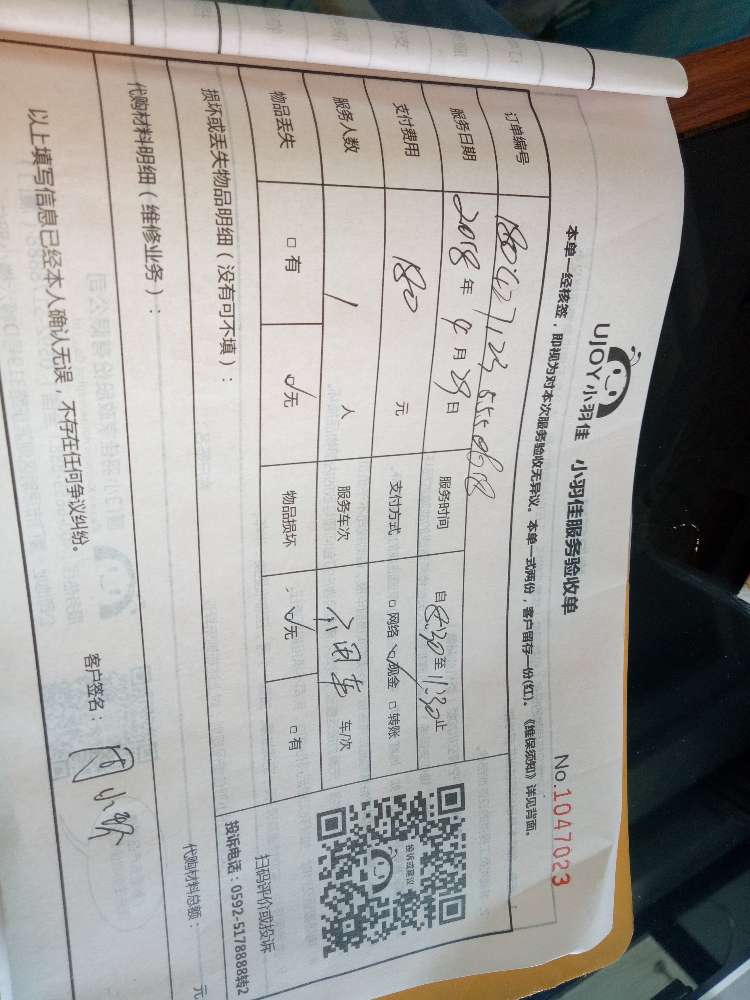 UJOY小羽佳 小羽佳服务验收单 No.1047023
本单一经核签，即视为对本次服务验收无异议。本单一式两份，客户留存一份(红)。《维保须知》详见背面。
订单编号
服务日期 2018 年 4 月 29 日 服务时间 自 8:30 至 11:30 止
支付费用 180 元 支付方式 □ 网络 ☑ 现金 □ 转账
服务人数 1 人 服务车次 不用车 车/次
物品丢失 □ 有 ☑ 无 物品损坏 ☑ 无 □ 有
投诉或建议
扫码评价或投诉
投诉电话：0592-5178888转2
损坏或丢失物品明细（没有可不填）：
代购材料明细（维修业务）： 代购材料总额： 元
以上填写信息已经本人确认无误，不存在任何争议纠纷。 客户签名：